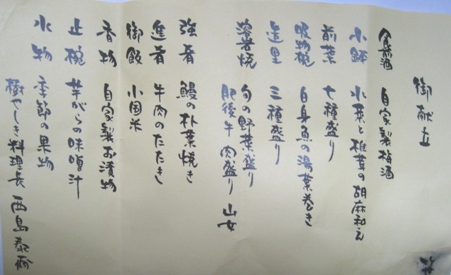 御献立
食前酒 自家製梅酒
小鉢 水菜と椎茸の胡麻和え
前菜 七種盛り
吸物椀 白身魚の湯葉巻き
造里 三種盛り
溶岩焼 旬の野菜盛り
肥後牛 肉盛り 山女
強肴 鰻の朴葉焼き
進肴 牛肉のたたき
御飯 小国米
香物 自家製お漬物
止椀 芋がらの味噌汁
水物 季節の果物
料理長 西島